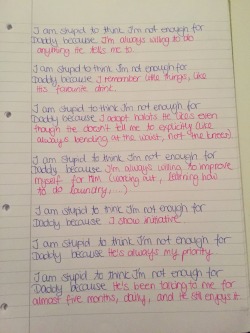 I am stupid to think I'm not enough for
Daddy because I'm always willing to do
anything He tells me to.
I am stupid to think I'm not enough for
Daddy because I remember like things, like
His favourite drink.
I am stupid to think I'm not enough for
Daddy because I adopt habits He likes even
though He doesn't tell me to explicitly (like
always bending at the waist, not the knees)
I am stupid to think I'm not enough for
Daddy because I'm always willing to improve
myself for Him (working out, learning how
to do laundry,....)
I am stupid to think I'm not enough for
Daddy because I show initiative.
I am stupid to think I'm not enough for
Daddy because He's always my priority.
I am stupid to think I'm not enough for
Daddy because He's been talking to me for
almost five months, daily, and He still enjoys it.